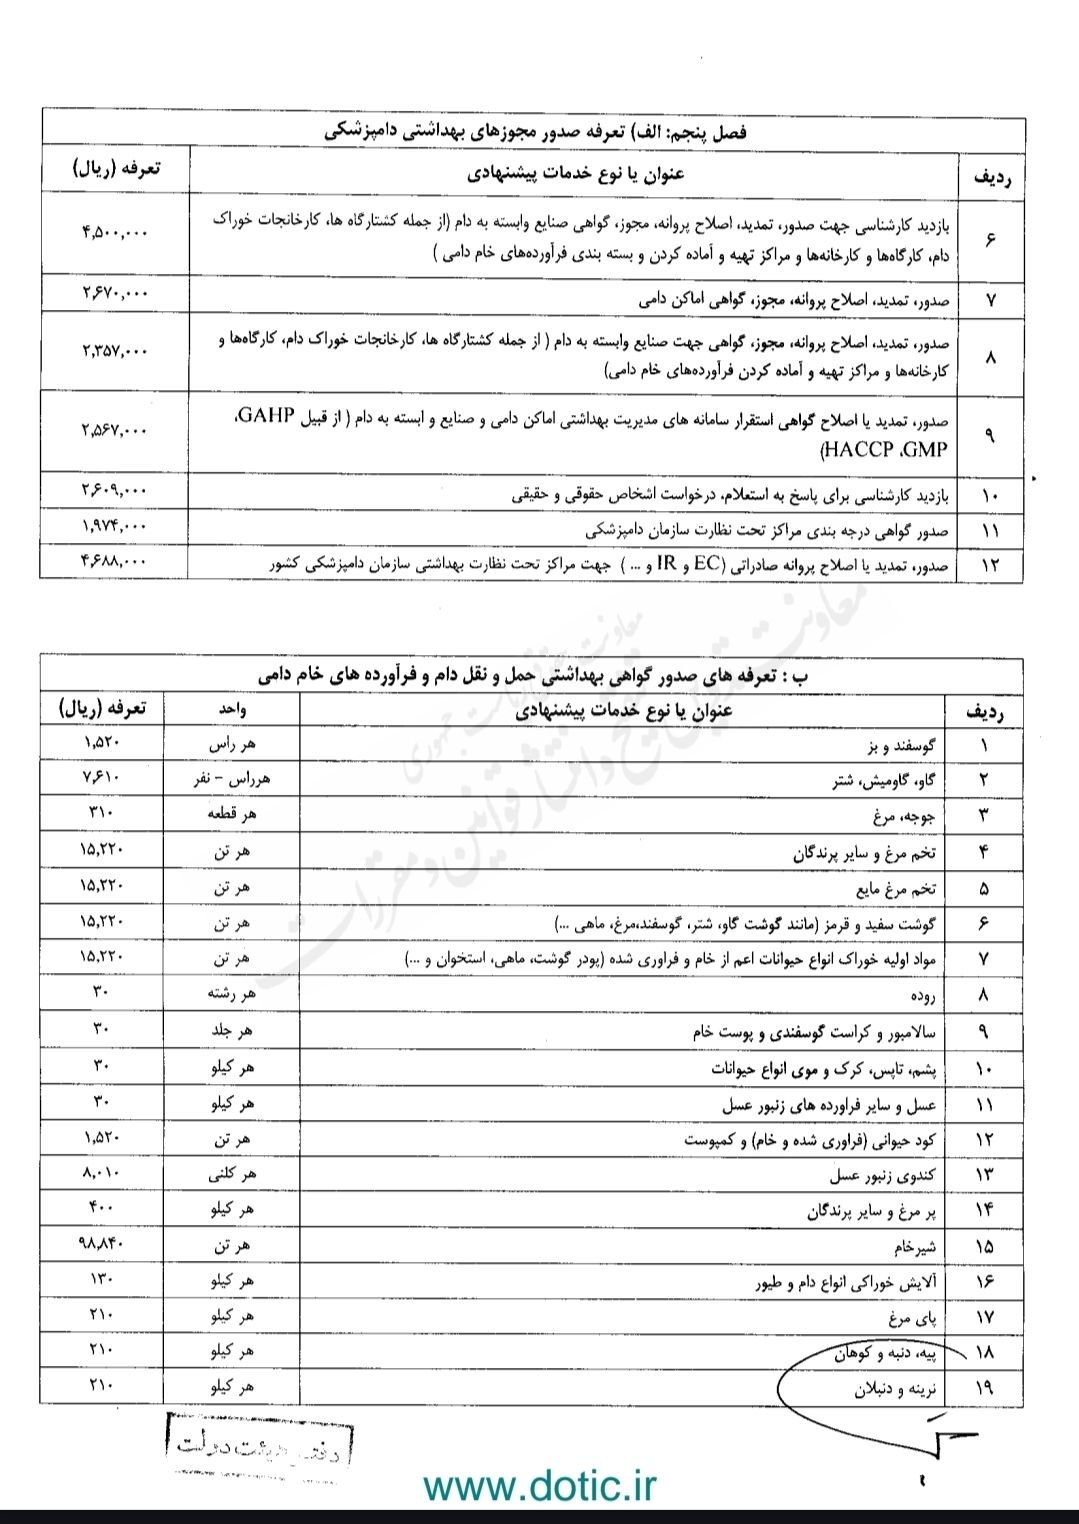 فصل پنجم: الف) تعرفه صدور مجوزهای بهداشتی دامپزشکی
ردیف عنوان یا نوع خدمات پیشنهادی تعرفه (ریال)
۶ بازدید کارشناسی جهت صدور، تمدید، اصلاح پروانه، مجوز، گواهی صنایع وابسته به دام (از جمله کشتارگاه ها، کارخانجات خوراک ۴,۵۰۰,۰۰۰
دام، کارگاه‌ها و کارخانه‌ها و مراکز تهیه و آماده کردن و بسته بندی فرآورده‌های خام دامی )
۷ صدور، تمدید، اصلاح پروانه، مجوز، گواهی اماکن دامی ۲,۶۷۰,۰۰۰
۸ صدور، تمدید، اصلاح پروانه، مجوز، گواهی جهت صنایع وابسته به دام ( از جمله کشتارگاه ها، کارخانجات خوراک دام، کارگاه‌ها و ۲,۳۵۷,۰۰۰
کارخانه‌ها و مراکز تهیه و آماده کردن فرآورده‌های خام دامی)
۹ صدور، تمدید یا اصلاح گواهی استقرار سامانه های مدیریت بهداشتی اماکن دامی و صنایع و ابسته به دام ( از قبیل GAHP، ۲,۵۶۷,۰۰۰
HACCP ،GMP)
۱۰ بازدید کارشناسی برای پاسخ به استعلام، درخواست اشخاص حقوقی و حقیقی ۲,۶۰۹,۰۰۰
۱۱ صدور گواهی درجه بندی مراکز تحت نظارت سازمان دامپزشکی ۱,۹۷۴,۰۰۰
۱۲ صدور، تمدید یا اصلاح پروانه صادراتی (EC و IR و ... ) جهت مراکز تحت نظارت بهداشتی سازمان دامپزشکی کشور ۴,۶۸۸,۰۰۰
ب : تعرفه های صدور گواهی بهداشتی حمل و نقل دام و فرآورده های خام دامی
ردیف عنوان یا نوع خدمات پیشنهادی واحد تعرفه (ریال)
۱ گوسفند و بز هر راس ۱,۵۲۰
۲ گاو، گاومیش، شتر هرراس - نفر ۷,۶۱۰
۳ جوجه، مرغ هر قطعه ۳۱۰
۴ تخم مرغ و سایر پرندگان هر تن ۱۵,۲۲۰
۵ تخم مرغ مایع هر تن ۱۵,۲۲۰
۶ گوشت سفید و قرمز (مانند گوشت گاو، شتر، گوسفند،مرغ، ماهی ...) هر تن ۱۵,۲۲۰
۷ مواد اولیه خوراک انواع حیوانات اعم از خام و فراوری شده (پودر گوشت، ماهی، استخوان و ...) هر تن ۱۵,۲۲۰
۸ روده هر رشته ۳۰
۹ سالامبور و کراست گوسفندی و پوست خام هر جلد ۳۰
۱۰ پشم، تاپس، کرک و موی انواع حیوانات هر کیلو ۳۰
۱۱ عسل و سایر فراورده های زنبور عسل هر کیلو ۳۰
۱۲ کود حیوانی (فراوری شده و خام) و کمپوست هر تن ۱,۵۲۰
۱۳ کندوی زنبور عسل هر کلنی ۸,۰۱۰
۱۴ پر مرغ و سایر پرندگان هر کیلو ۴۰۰
۱۵ شیرخام هر تن ۹۸,۸۴۰
۱۶ آلایش خوراکی انواع دام و طیور هر کیلو ۱۳۰
۱۷ پای مرغ هر کیلو ۲۱۰
۱۸ پیه، دنبه و کوهان هر کیلو ۲۱۰
۱۹ نرینه و دنبلان هر کیلو ۲۱۰
دفتر هیئت دولت
www.dotic.ir